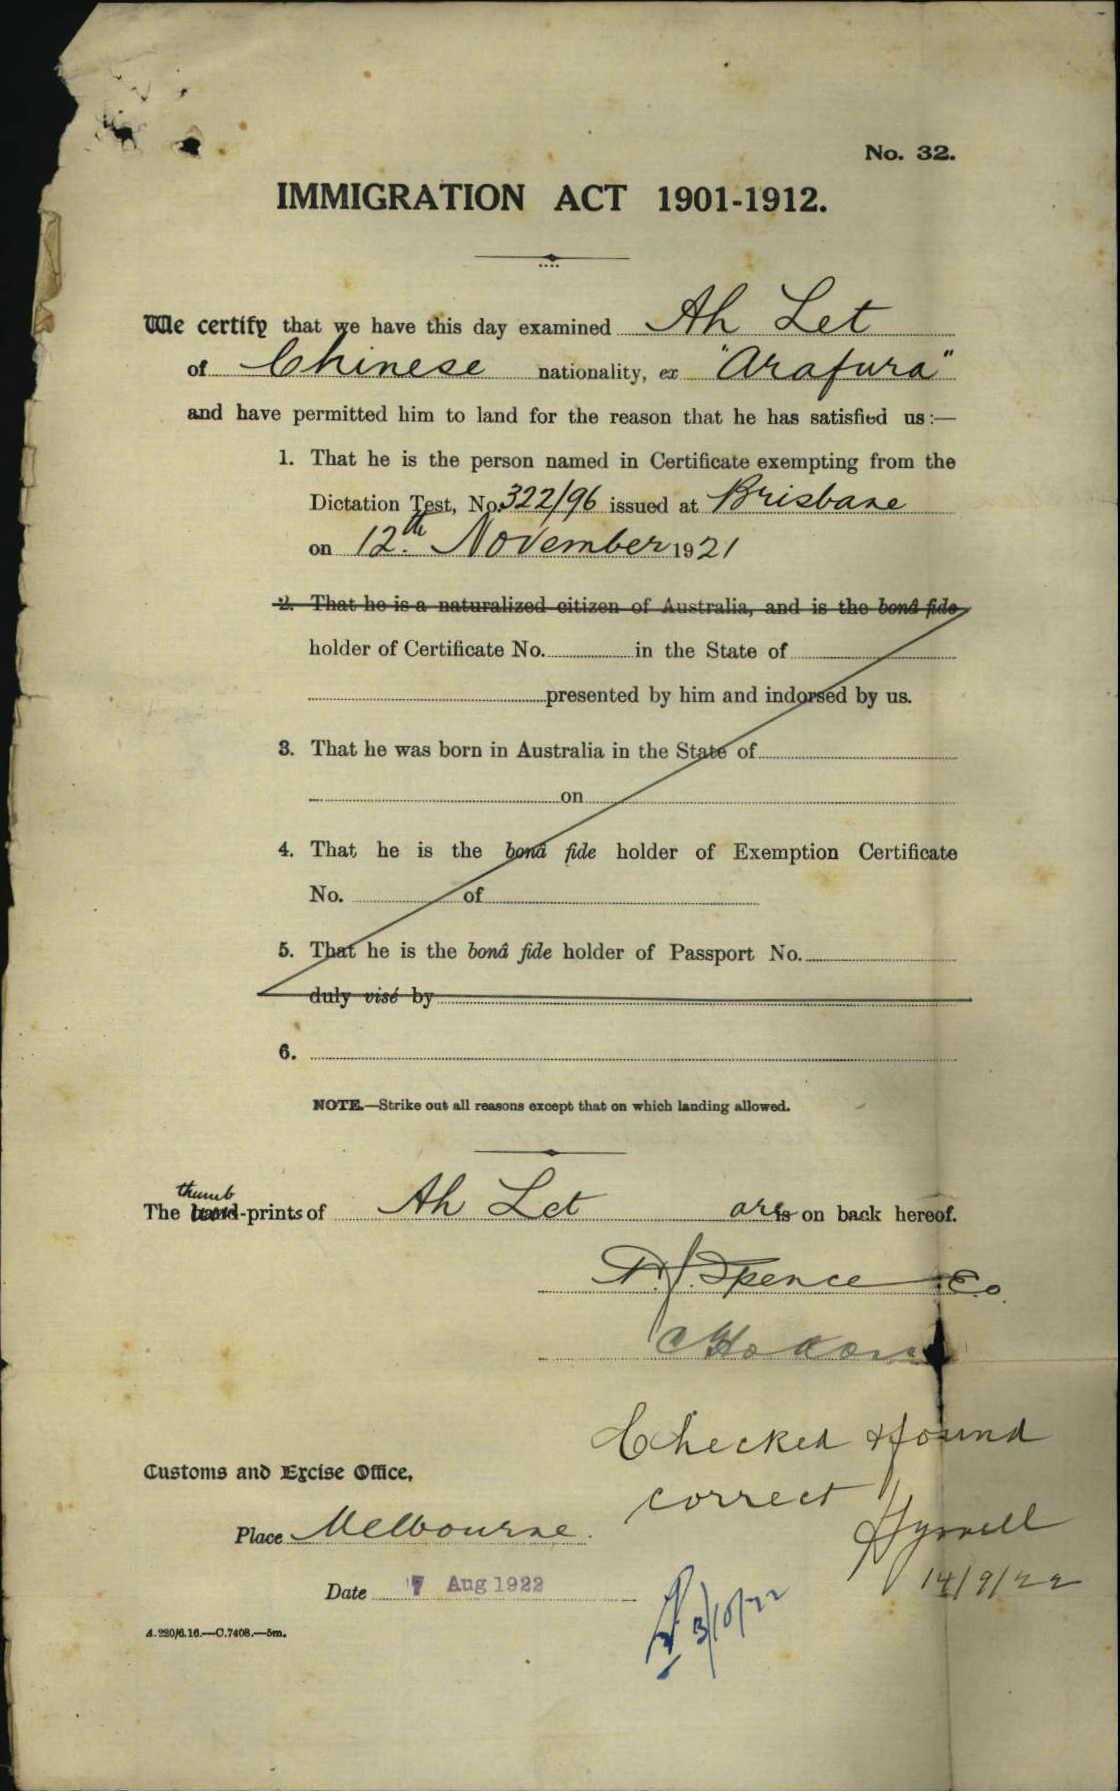 No. 32.
IMMIGRATION ACT 1901-1912.
We certify that we have this day examined Ah Let
of Chinese nationality, ex "Arafura"
and have permitted him to land for the reason that he has satisfied us:—
1. That he is the person named in Certificate exempting from the
Dictation Test, No. 322/96 issued at Brisbane
on 12th November 1921
2. That he is a naturalized citizen of Australia, and is the bonâ fide
holder of Certificate No. in the State of
presented by him and indorsed by us.
3. That he was born in Australia in the State of
on
4. That he is the bonâ fide holder of Exemption Certificate
No. of
5. That he is the bonâ fide holder of Passport No.
duly visé by
6.
NOTE.—Strike out all reasons except that on which landing allowed.
thumb
The hand-prints of Ah Let are is on back hereof.
Spence
Checked & found
correct
Customs and Excise Office,
Place Melbourne.
14/9/22
Date 7 Aug 1922
3/10/22
A.220/6.16.—C.7408.—5m.